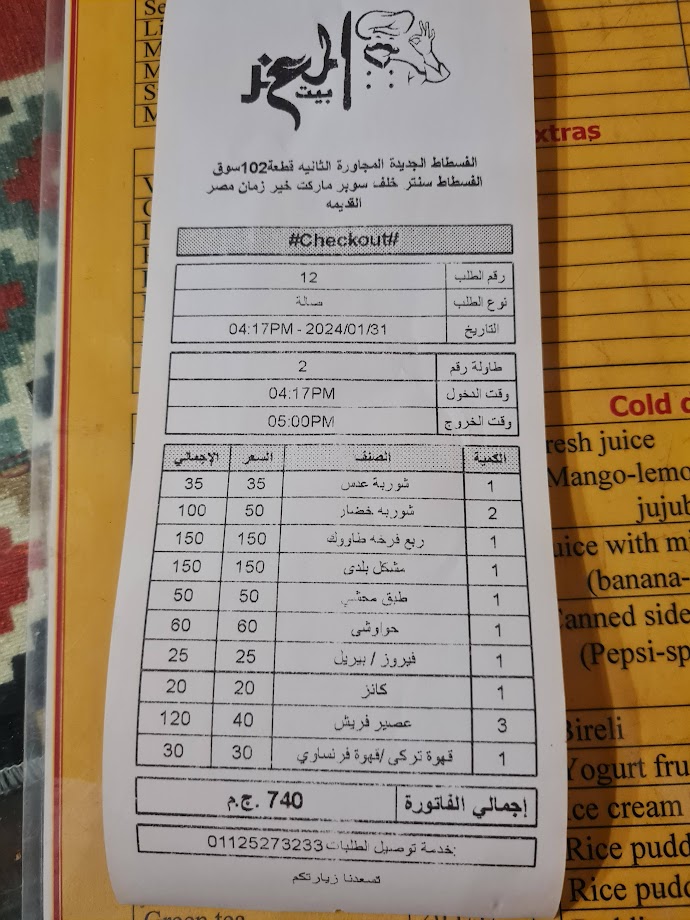 بيت المعز
الفسطاط الجديدة المجاورة الثانيه قطعة102سوق
الفسطاط سنتر خلف سوبر ماركت خير زمان مصر
القديمه
#Checkout#
رقم الطلب 12
نوع الطلب صالة
التاريخ 04:17PM - 2024/01/31
طاولة رقم 2
وقت الدخول 04:17PM
وقت الخروج 05:00PM
الكمية الصنف السعر الإجمالي
1 شوربة عدس 35 35
2 شوربه خضار 50 100
1 ربع فرخه طاووك 150 150
1 مشكل بلدى 150 150
1 طبق محشي 50 50
1 حواوشى 60 60
1 فيروز / بيريل 25 25
1 كانز 20 20
3 عصير فريش 40 120
1 قهوة تركى /قهوة فرنساوي 30 30
إجمالي الفاتورة 740 ج.م.
خدمة توصيل الطلبات:01125273233
تسعدنا زيارتكم
xtras
Cold
resh juice
Mango-lemo
jujub
uice with mi
(banana-
anned side
(Pepsi-sp
Bireli
Yogurt fru
ce cream
Rice pudd
Rice pudd
Green tea